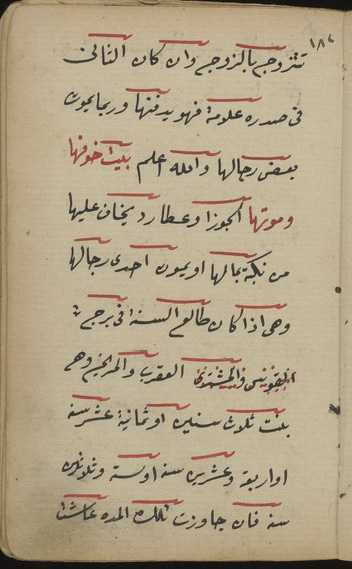 ١٨٧
تتزوج بالزوج وان كان الثانى
فى صدره علامة فهو يدفنها وربما يموت
بعض رجالها والله اعلم بيت خوفها
وموتها الجوزا وعطارد يخاف عليها
من نكبة بمالها او يموت احدى رجالها
وهى اذا كان طالع السنة فى برجى
القوس والمشترى العقرب والمريخ وهى
بنت ثلاث سنين او ثمانية عشر سنه
او اربعة وعشرين سنه او ستة وثلاثين
سنه فان جاوزت تلك المده عاشت